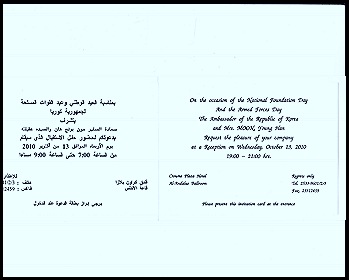 بمناسبة العيد الوطني وعيد القوات المسلحة
لجمهورية كوريا
يتشرف
سعادة السفير مون يونج هان والسيدة عقيلته
بدعوتكم لحضور حفل الاستقبال الذي سيقام
يوم الأربعاء الموافق 13 من أكتوبر 2010
من الساعة 7:00 حتى الساعة 9:00 مساءا
فندق كراون بلازا
قاعة الأندلس
يرجى إبراز بطاقة الدعوة عند الدخول
On the occasion of the National Foundation Day
And the Armed Forces Day
The Ambassador of the Republic of Korea
and Mrs. MOON, Young Han
Request the pleasure of your company
at a Reception on Wednesday, October 13, 2010
19:00 – 21:00 hrs.
Crowne Plaza Hotel
Al-Andalus Ballroom
Regrets only
Please present this invitation card at the entrance